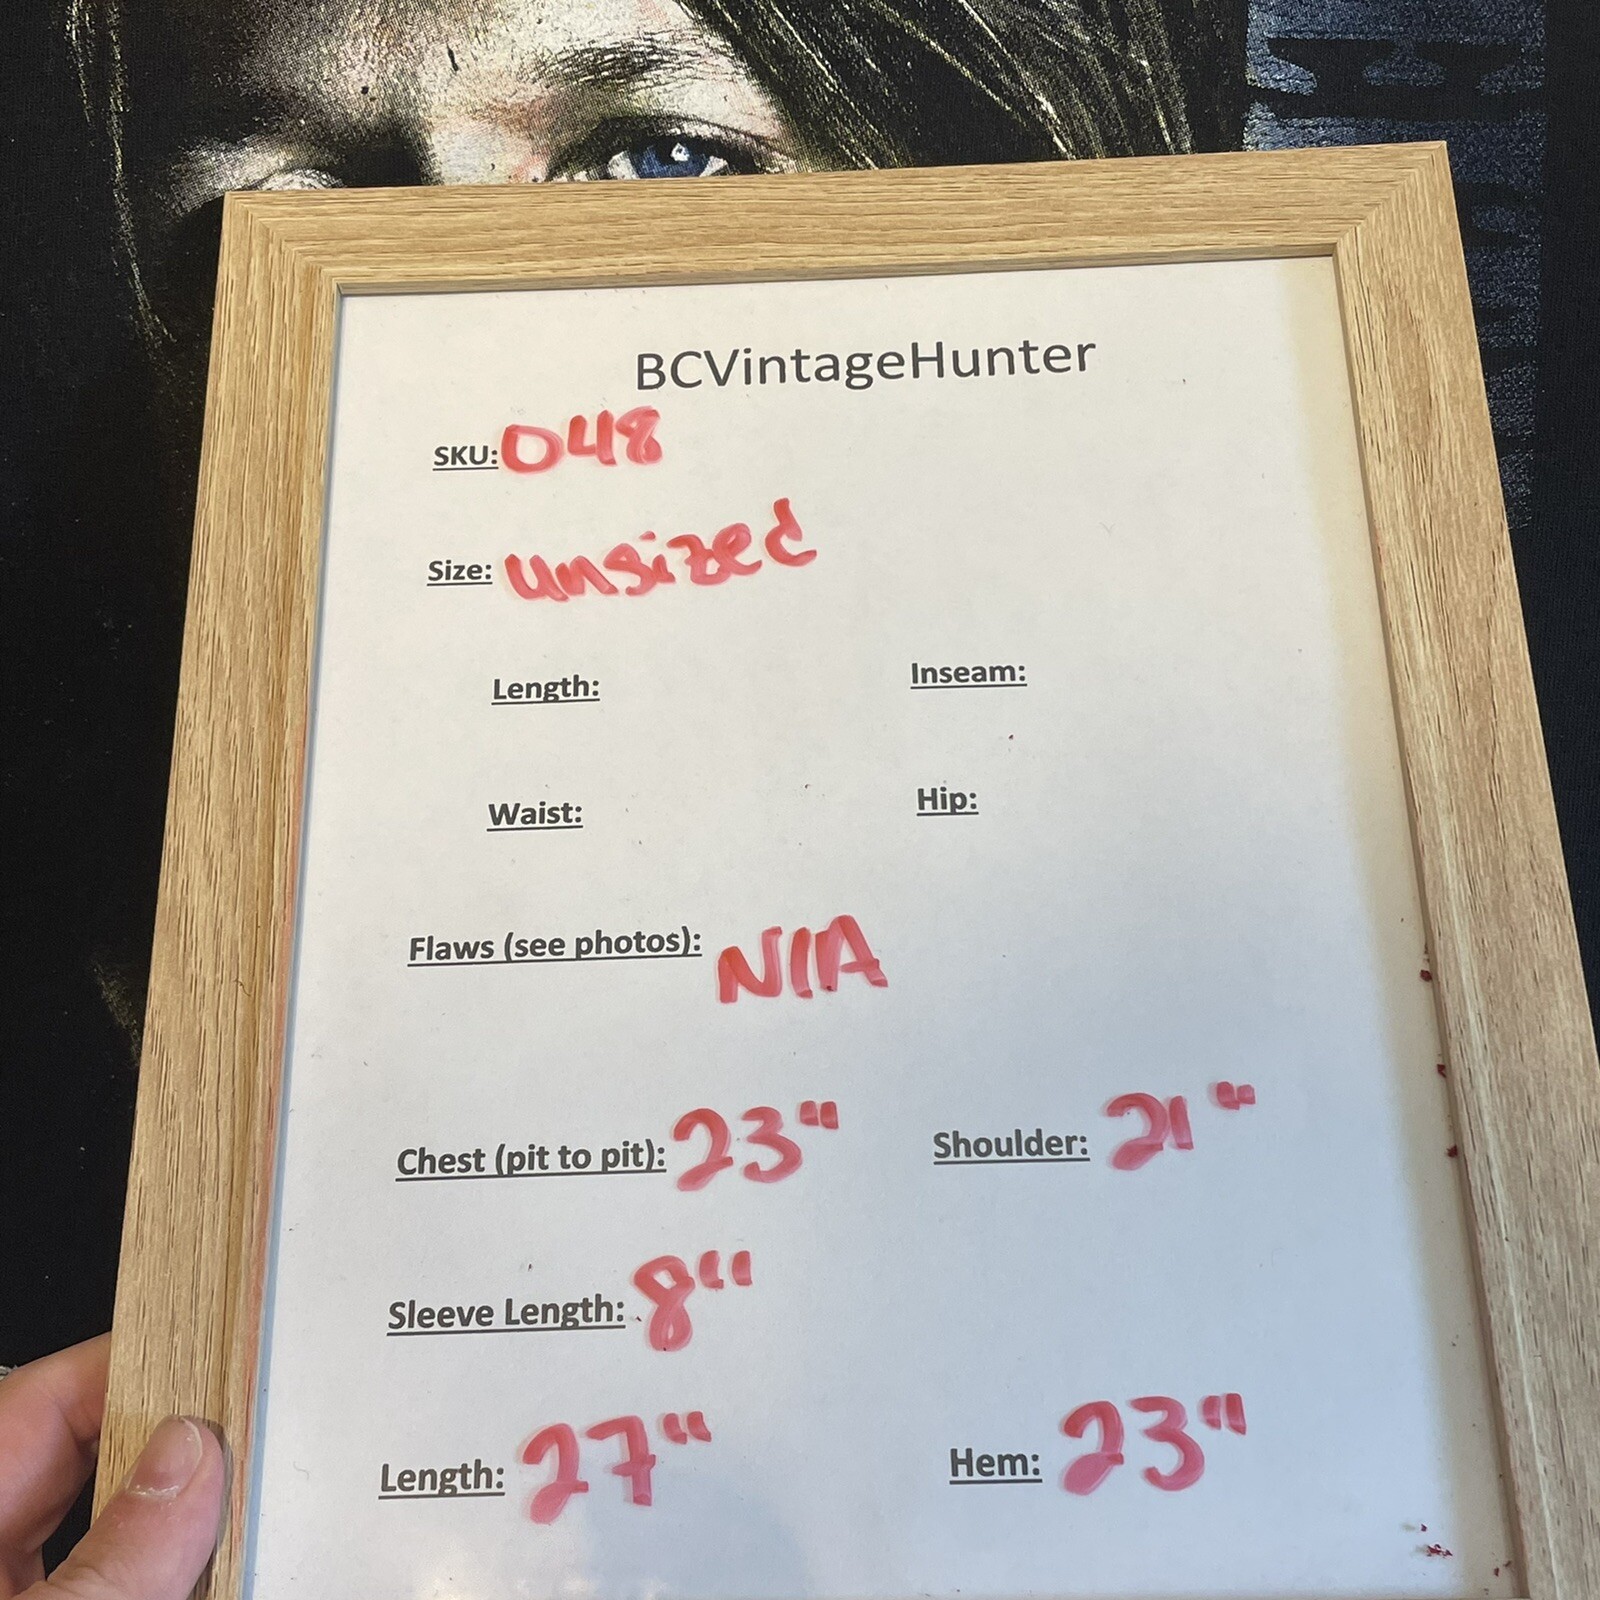 BCVintageHunter
SKU: 048
Size: unsized
Length: Inseam:
Waist: Hip:
Flaws (see photos): N/A
Chest (pit to pit): 23" Shoulder: 21"
Sleeve Length: 8"
Length: 27" Hem: 23"